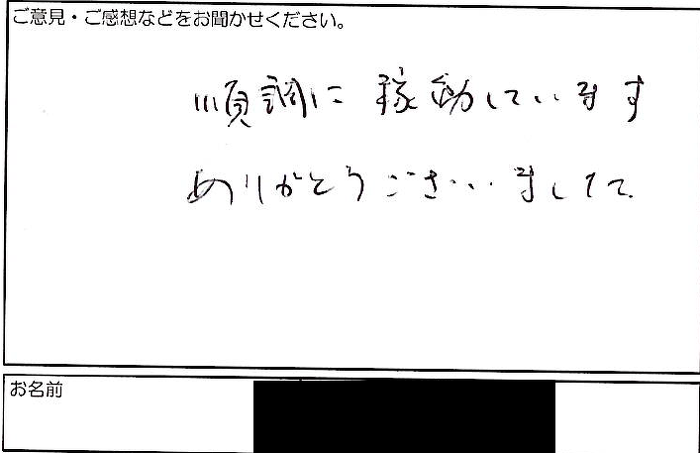 ご意見・ご感想などをお聞かせください。
順調に稼働しています
ありがとうございました
お名前